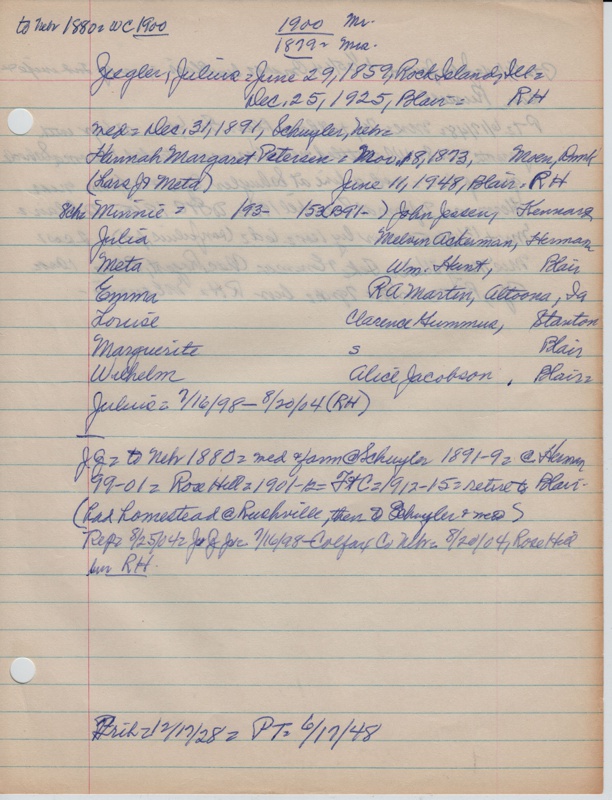 to Nebr 1880= WC 1900
1900 Mr.
1879= Mrs.
Ziegler, Julius = June 29, 1859, Rock Island, Ill=
Dec. 25, 1925, Blair= RH
med = Dec. 31, 1891, Schuyler, Nebr=
Hannah Margaret Petersen = Nov. 18, 1873, Moen, Dmk
(Lars J & Meta) June 11, 1948, Blair. RH
8chn Minnie = /93- 153(B91- ) John Jessen, Kennard
Julia Melvin Ackerman, Herman
Meta Wm. Hunt, Blair
Emma RA Martin, Altoona, Ia
Louise Clarence Gummus, Stanton
Marguerite s Blair
Wilhelm Alice Jacobson, Blair=
Julius = 7/16/98 - 8/20/04 (RH)
J.Z = to Nebr 1880 = med & farm @ Schuyler 1891-9= @ Herman
99-01 = Rose Hill = 1901-12= FtC = 1912-15 = retire to Blair-
(had homestead @ Rushville, then to Schuyler & med)
8/25/04= 7/16/98 - Colfax Co Nebr= 8/20/04, Rose Hill
bur RH.
12/17/28 = PT= 6/17/48